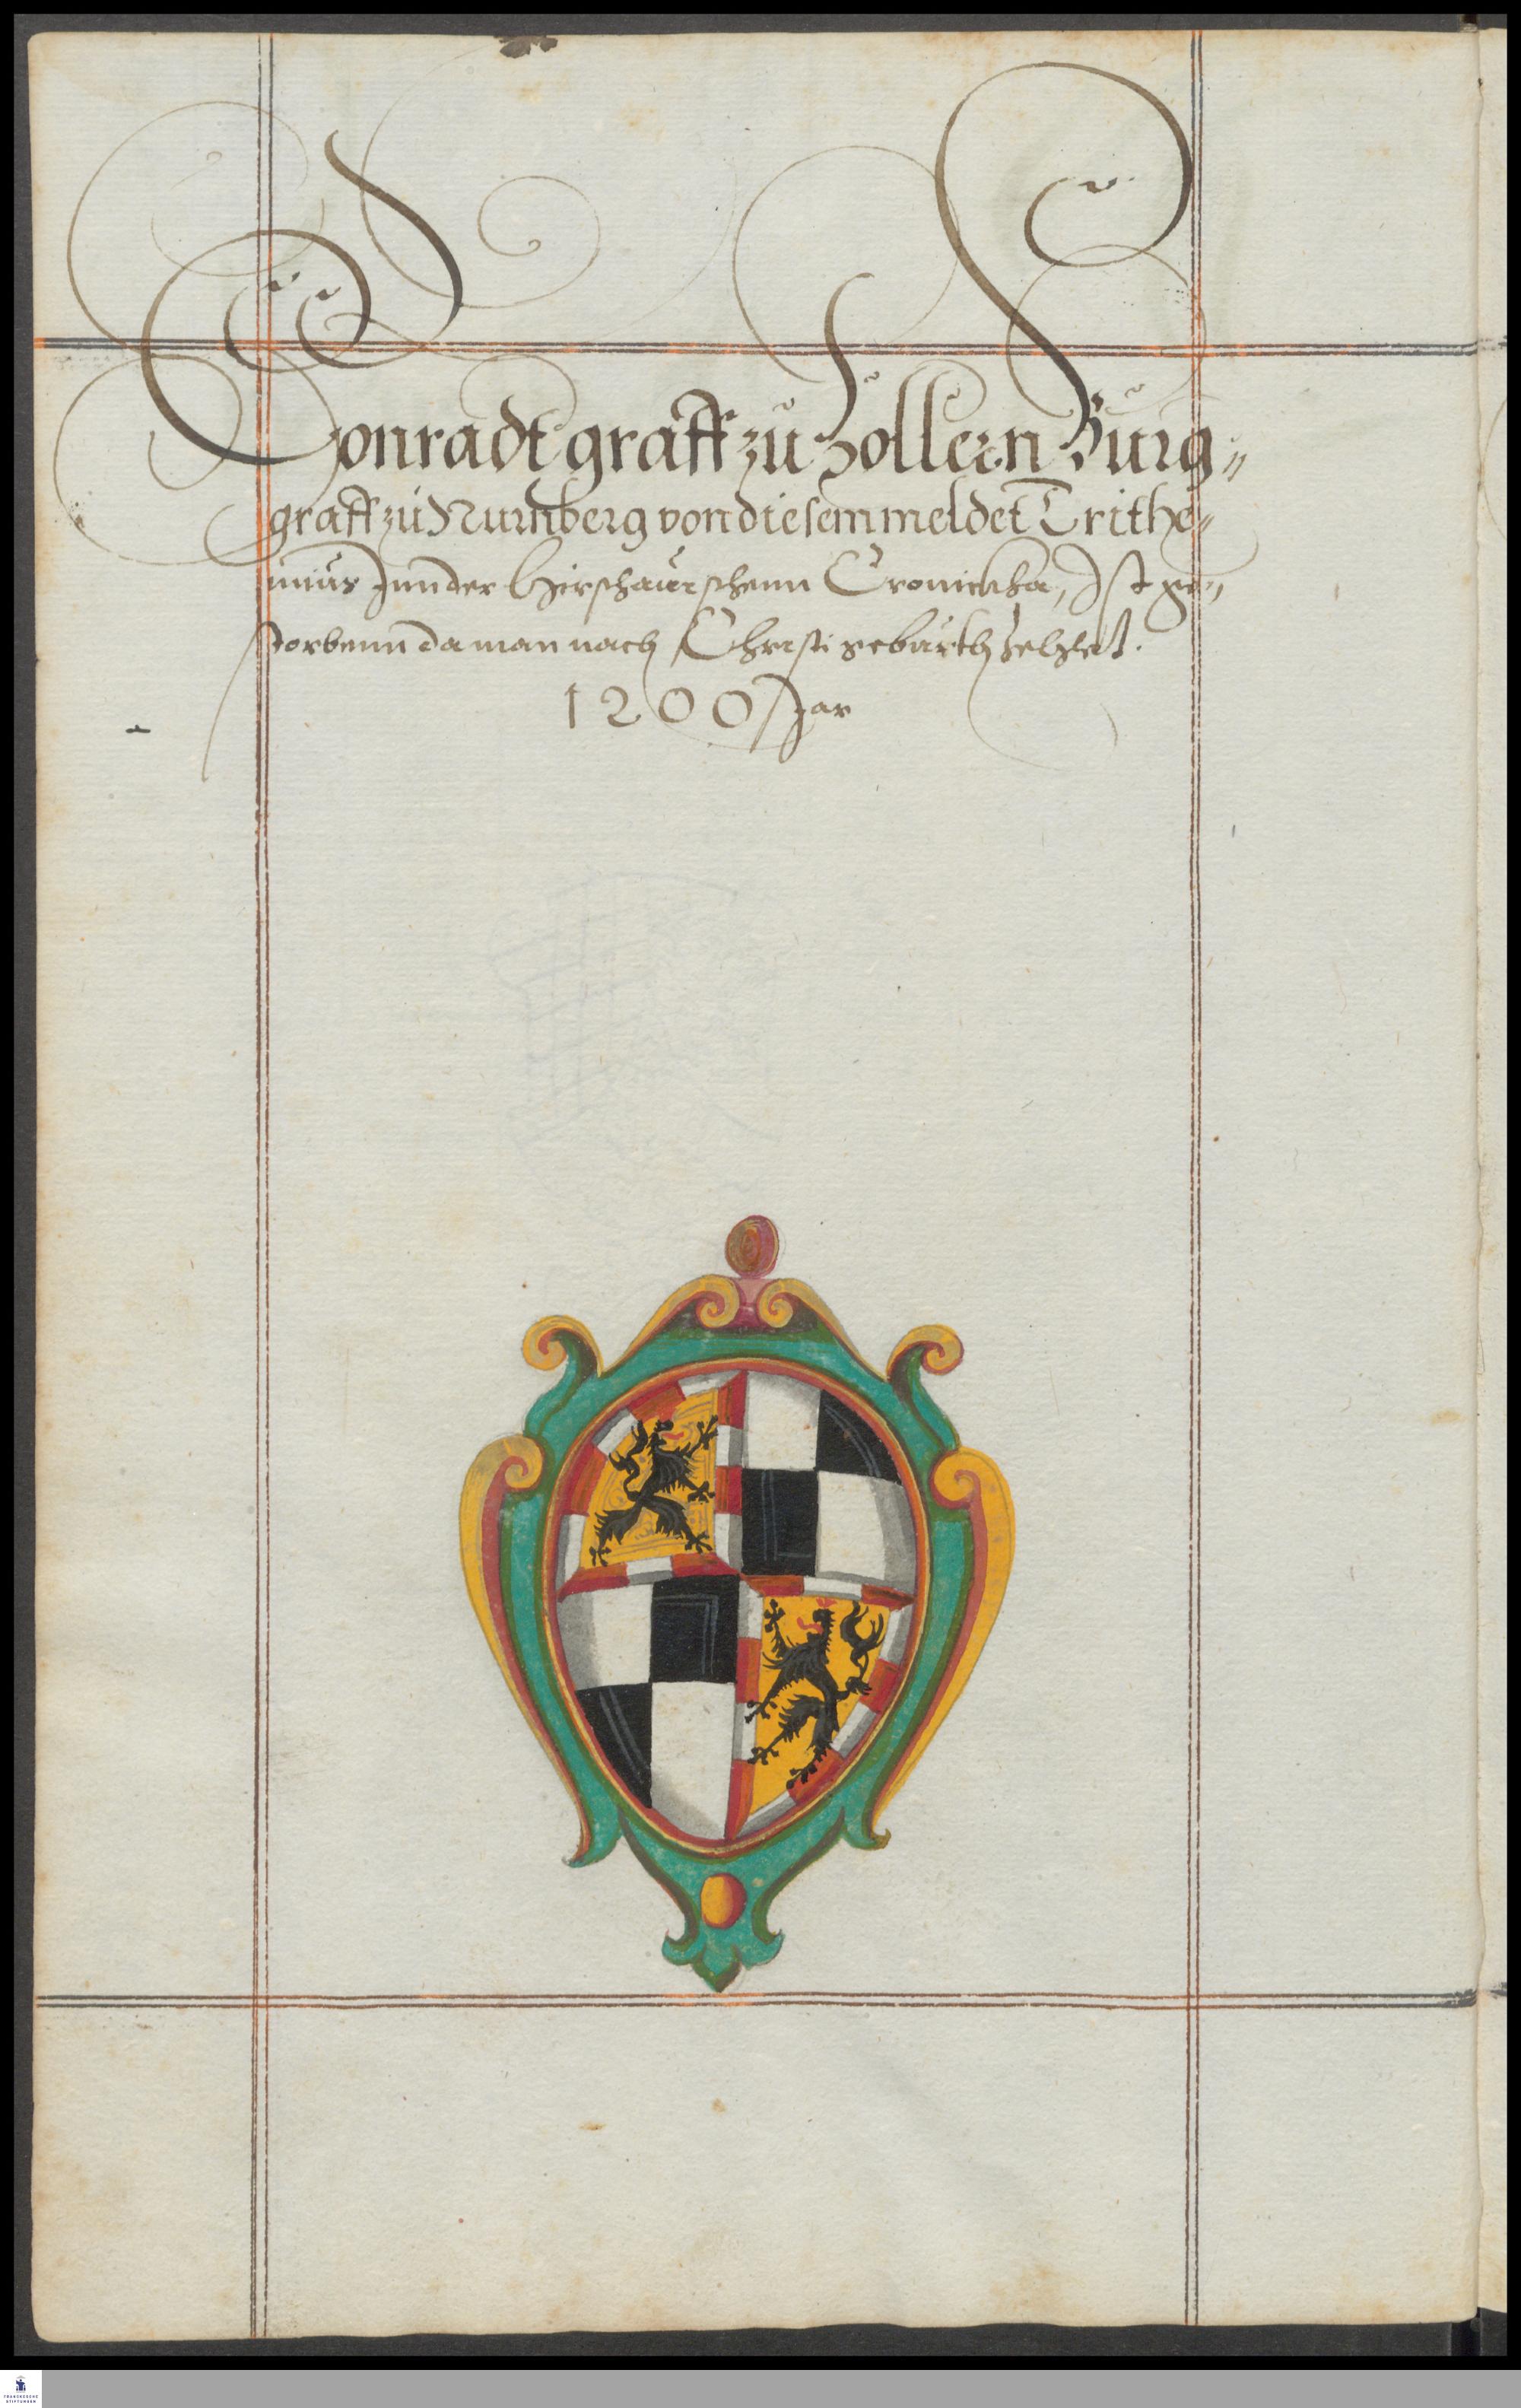 Conradt graff zu Zollern Burg=
graff zu Nurnberg von diesem meldet Trithe=
mius Inn der Hirschauischenn Cronickha, Ist ge=
storbenn da man nach Christi geburth zehlet.
1200 Jar
FRANCKESCHE
STIFTUNGEN